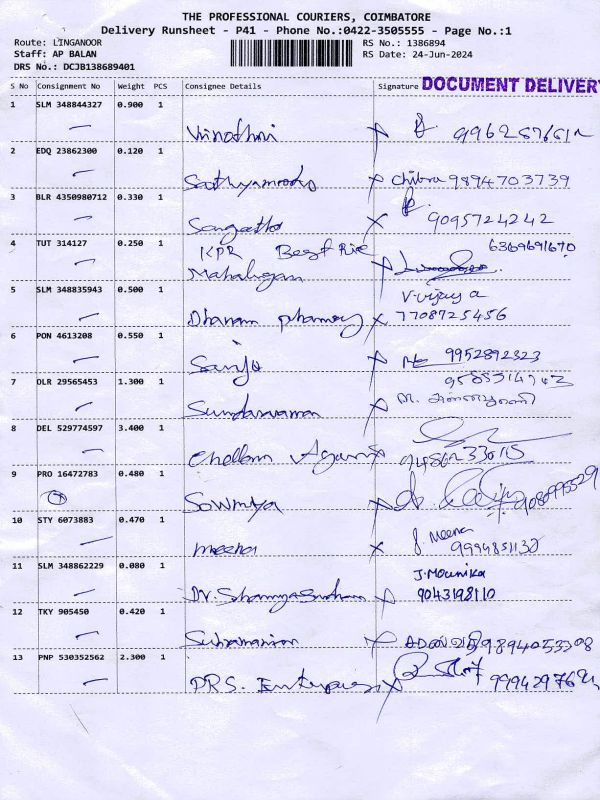 THE PROFESSIONAL COURIERS, COIMBATORE
Delivery Runsheet - P41 - Phone No.:0422-3505555 - Page No.:1
Route: LINGANOOR RS No.: 1386894
Staff: AP BALAN RS Date: 24-Jun-2024
DRS No.: DCJB138689401
S No Consignment No Weight PCS Consignee Details Signature DOCUMENT DELIVERY
1 SLM 348844327 0.900 1
Vinothini
2 EDQ 23862300 0.120 1
Chitra 9894703739
3 BLR 4350980712 0.330 1
9095724242
4 TUT 314127 0.250 1
KPR Best Rice 6369691670
Mahalingam
5 SLM 348835943 0.500 1
V. vijaya
Dhanam pharmacy 7708725456
6 PON 4613208 0.550 1
Sanju 9952892323
7 DLR 29565453 1.300 1
Sundararaman
8 DEL 529774597 3.400 1
Chellam Agarwal
9 PRO 16472783 0.480 1
Sowmiya
10 STY 6073883 0.470 1
meena J. Meena
11 SLM 348862229 0.080 1
J. Mounika
Dr. 9043198110
12 TKY 905450 0.420 1
Subramanian 9894053308
13 PNP 530352562 2.300 1
PRS. Enterprises